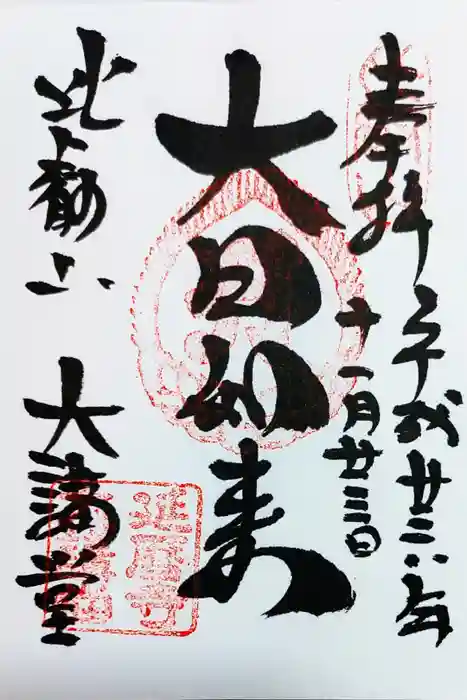 奉拝
平成廿六年
十一月廿三日
大日如来
比叡山
大講堂
延暦寺